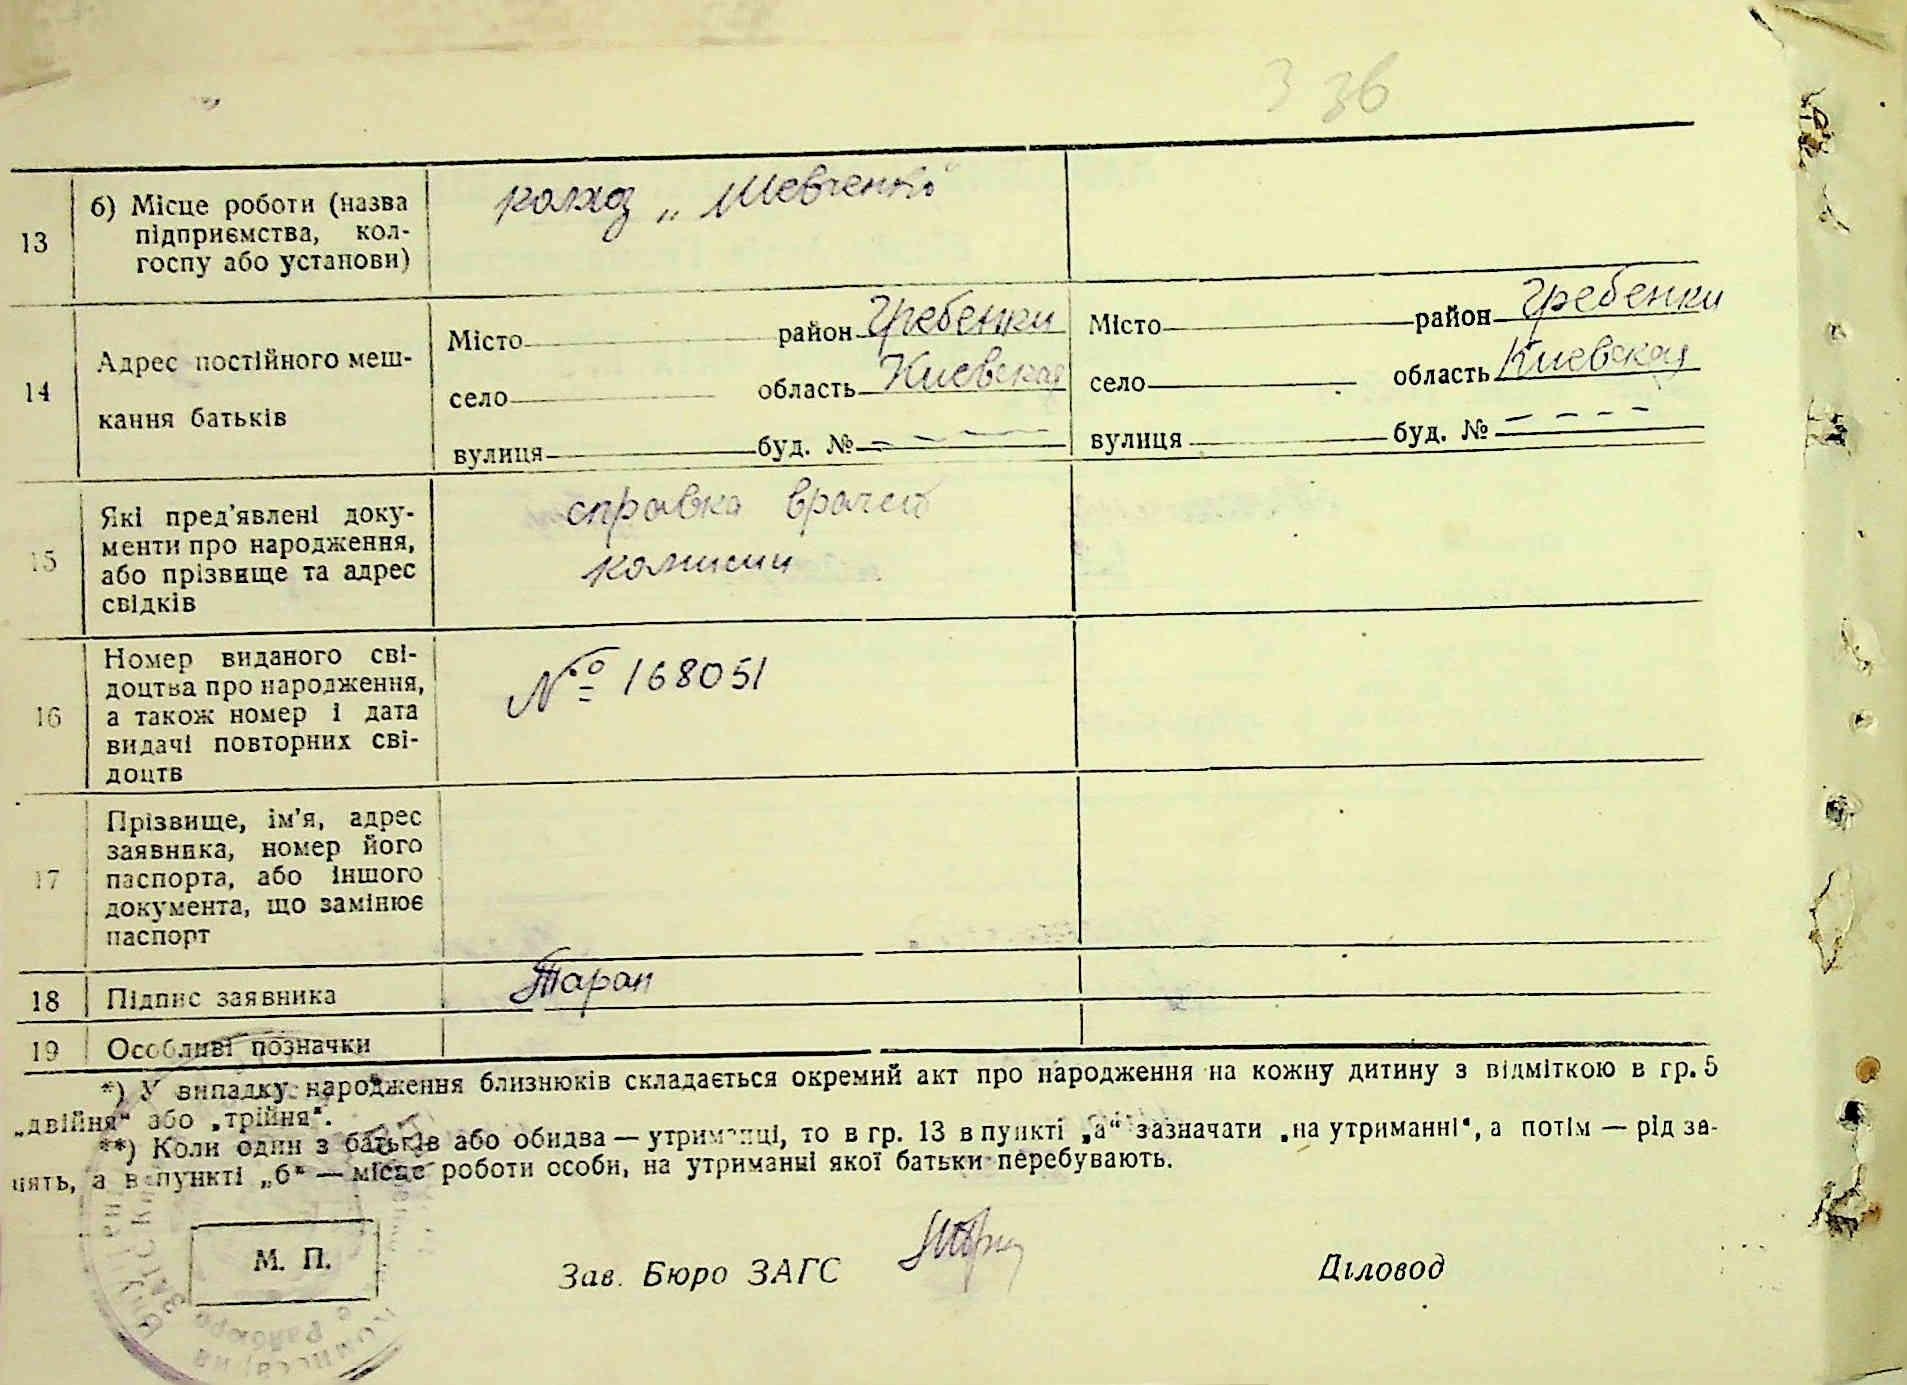 З 36
13
б) Місце роботи (назва
підприємства, кол-
госпу або установи)
колхоз „ Шевченко"
14
Адрес постійного меш-
кання батьків
Місто район Гребенки
село область Киевская
вулиця буд. № - - -
Місто район Гребенки
село область Киевская
вулиця буд. № - - - -
15
Які пред'явлені доку-
менти про народження,
або прізвище та адрес
свідків
справка врачеб
комисии
16
Номер виданого сві-
доцтва про народження,
а також номер і дата
видачі повторних сві-
доцтв
№ 168051
17
Прізвище, ім'я, адрес
заявника, номер його
паспорта, або іншого
документа, що замінює
паспорт
18
Підпис заявника
Таран
19
Особливі позначки
*) У випадку народження близнюків складається окремий акт про народження на кожну дитину з відміткою в гр. 5
„двійня" або „трійня".
**) Коли один з батьків або обидва — утриманці, то в гр. 13 в пункті „а" зазначати „на утриманні", а потім — рід за-
нять, а в пункті „б" — місце роботи особи, на утриманні якої батьки перебувають.
М. П.
Зав. Бюро ЗАГС
Діловод